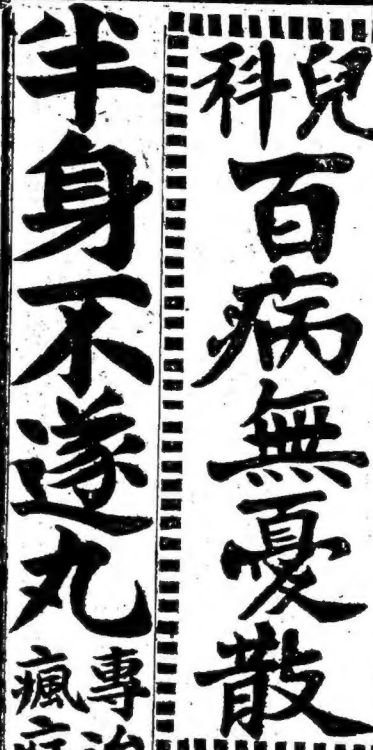 兒科
百病無憂散
半身不遂丸
專治
瘋